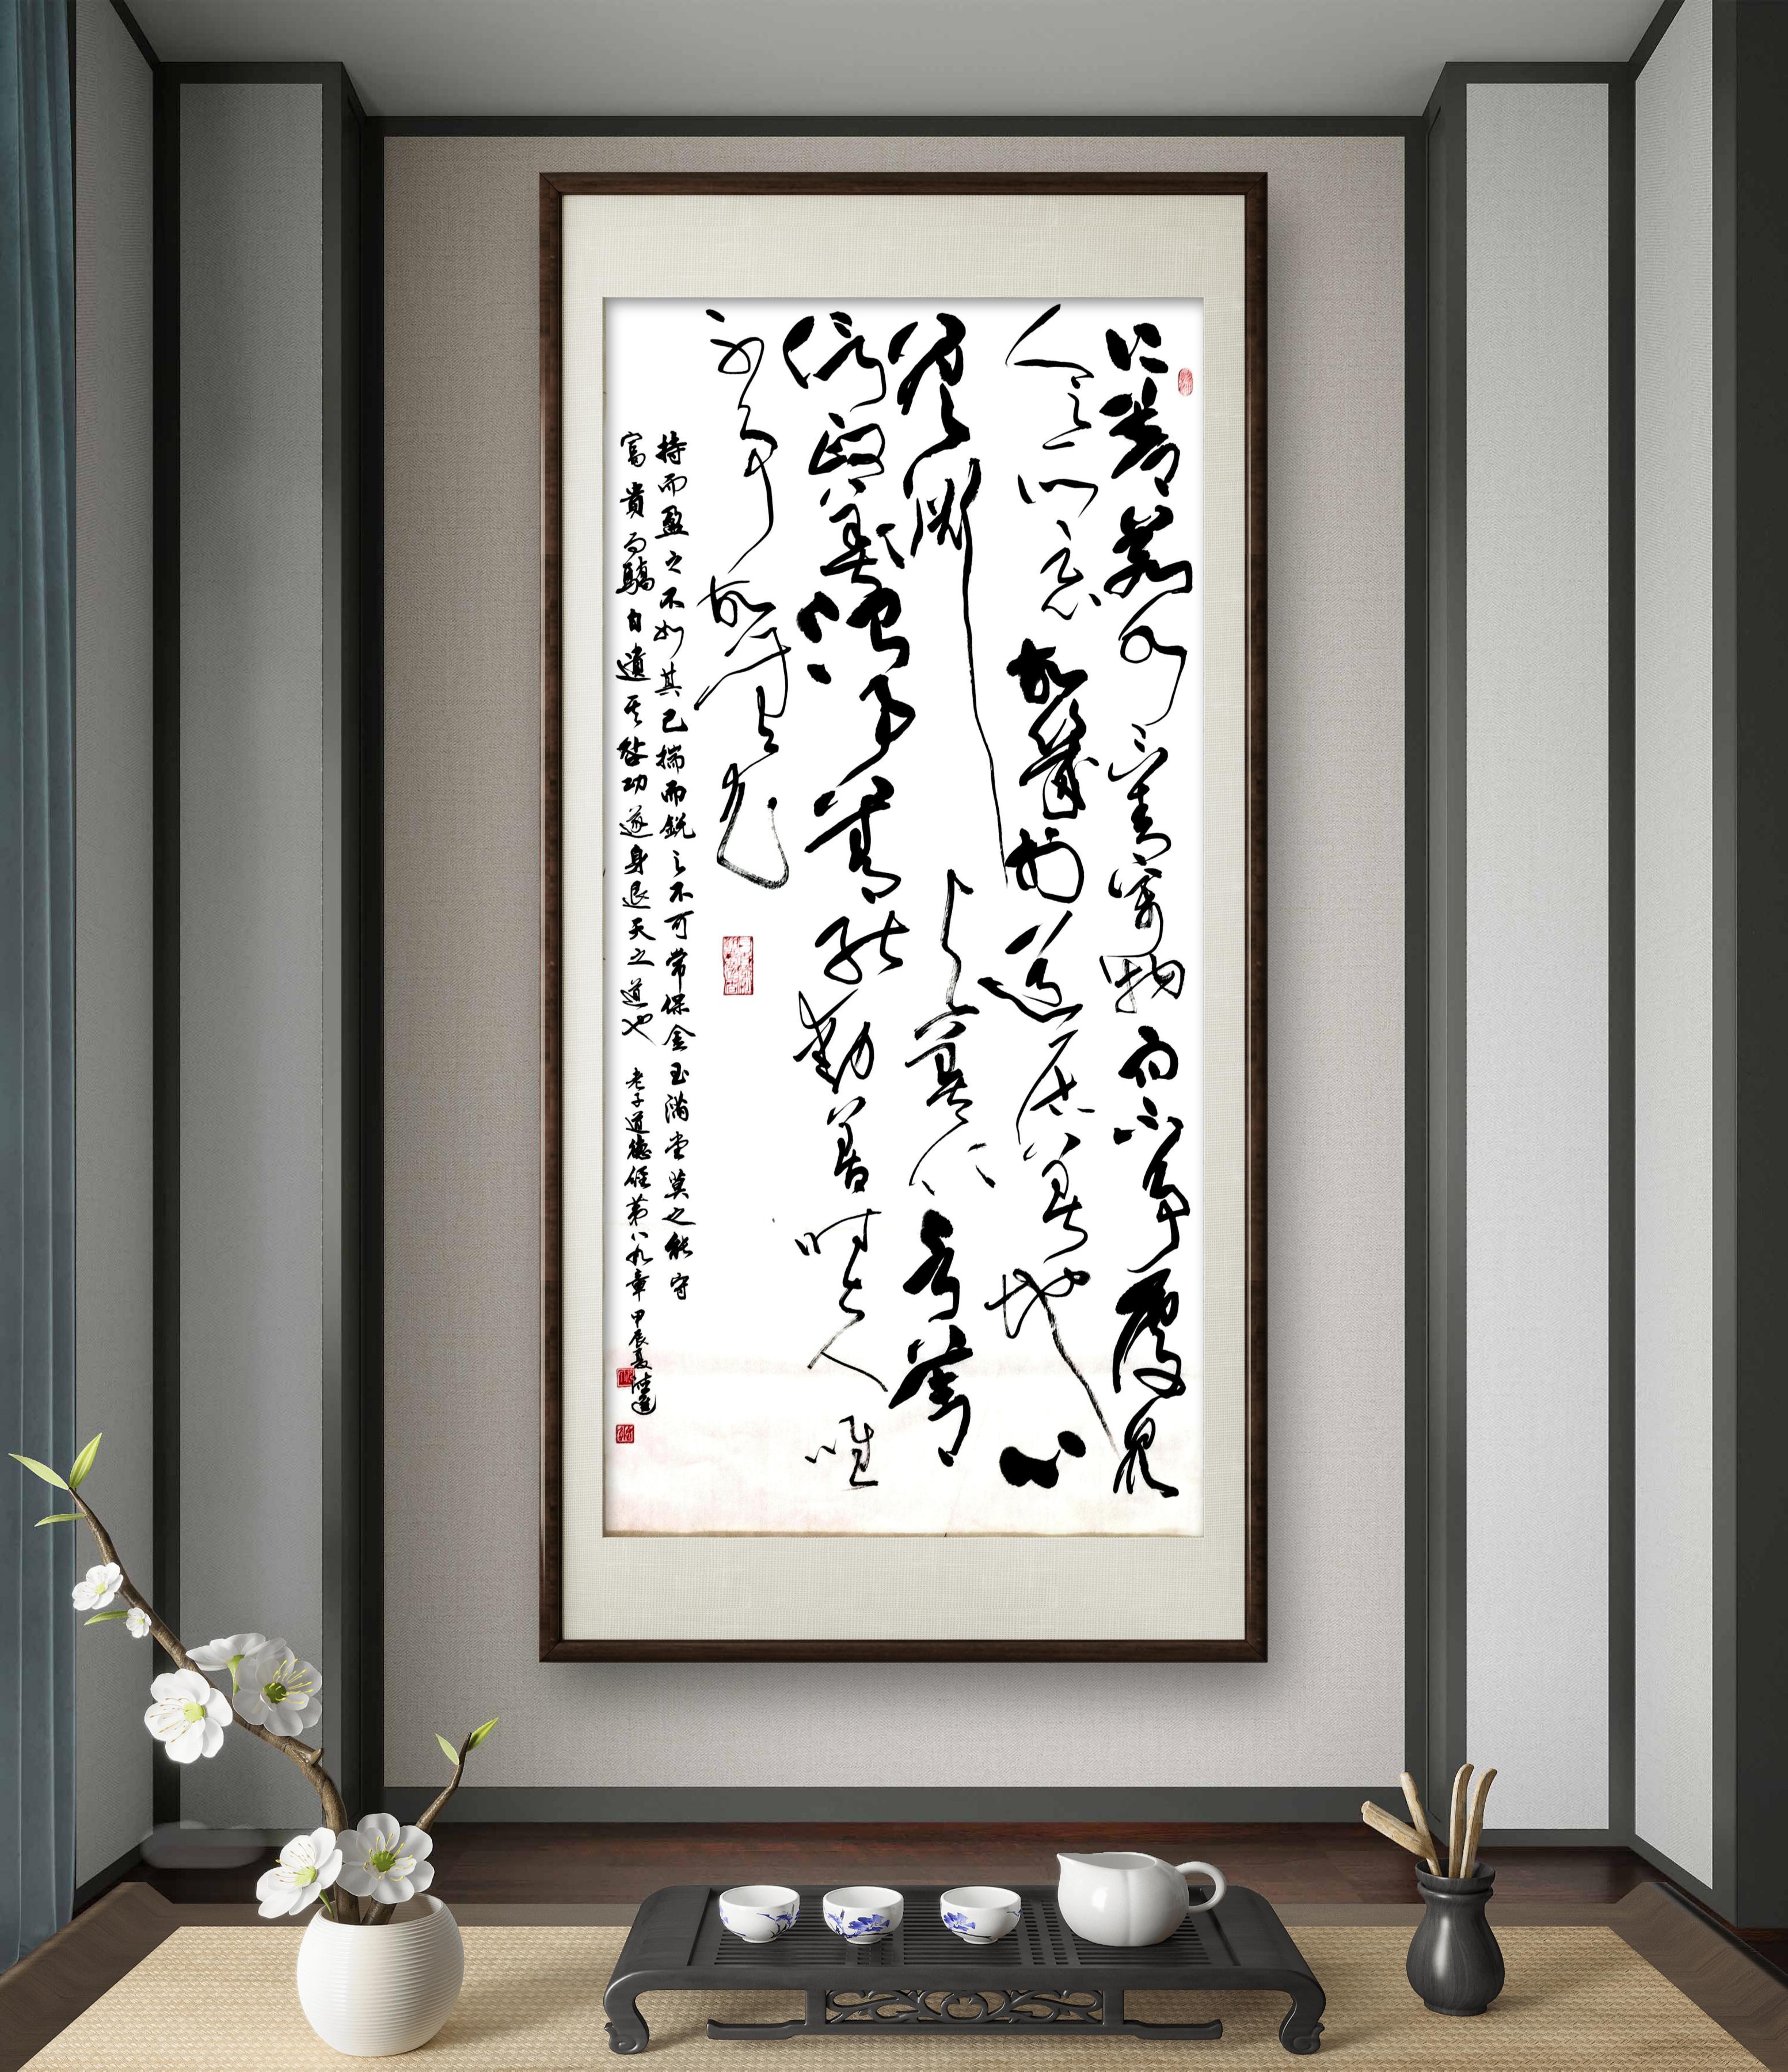 上善若水水善利萬物而不爭處衆
人之所惡故幾於道居善地心
善淵與善仁言善
信政善治事善能動善時夫唯
不爭故無尤
持而盈之不如其已揣而銳之不可常保金玉滿堂莫之能守
富貴而驕自遺其咎功遂身退天之道也 老子道德經第八九章 甲辰夏